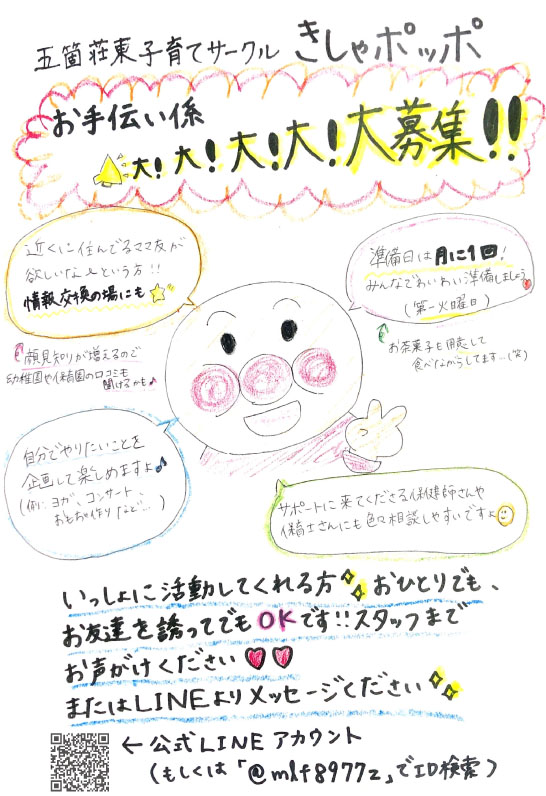 五箇荘東子育てサークル きしゃポッポ
お手伝い係
大!大!大!大!大募集!!
近くに住んでるママ友が
欲しいな〜という方!!
情報交換の場にも
顔見知りが増えるので
幼稚園や保育園の口コミも
聞けるかも♪
準備日は月に1回!
みんなでわいわい準備しましょう
(第一火曜日)
お茶菓子を用意して
食べながらしてます…(笑)
自分でやりたいことを
企画して楽しめますよ♪
(例:ヨガ、コンサート
おもちゃ作りなど…)
サポートに来てくださる保健師さんや
保育士さんにも色々相談しやすいですよ
いっしょに活動してくれる方 おひとりでも、
お友達を誘ってでもOKです!!スタッフまで
お声がけください
またはLINEよりメッセージください
←公式LINEアカウント
(もしくは「@mlf8977z」でID検索)